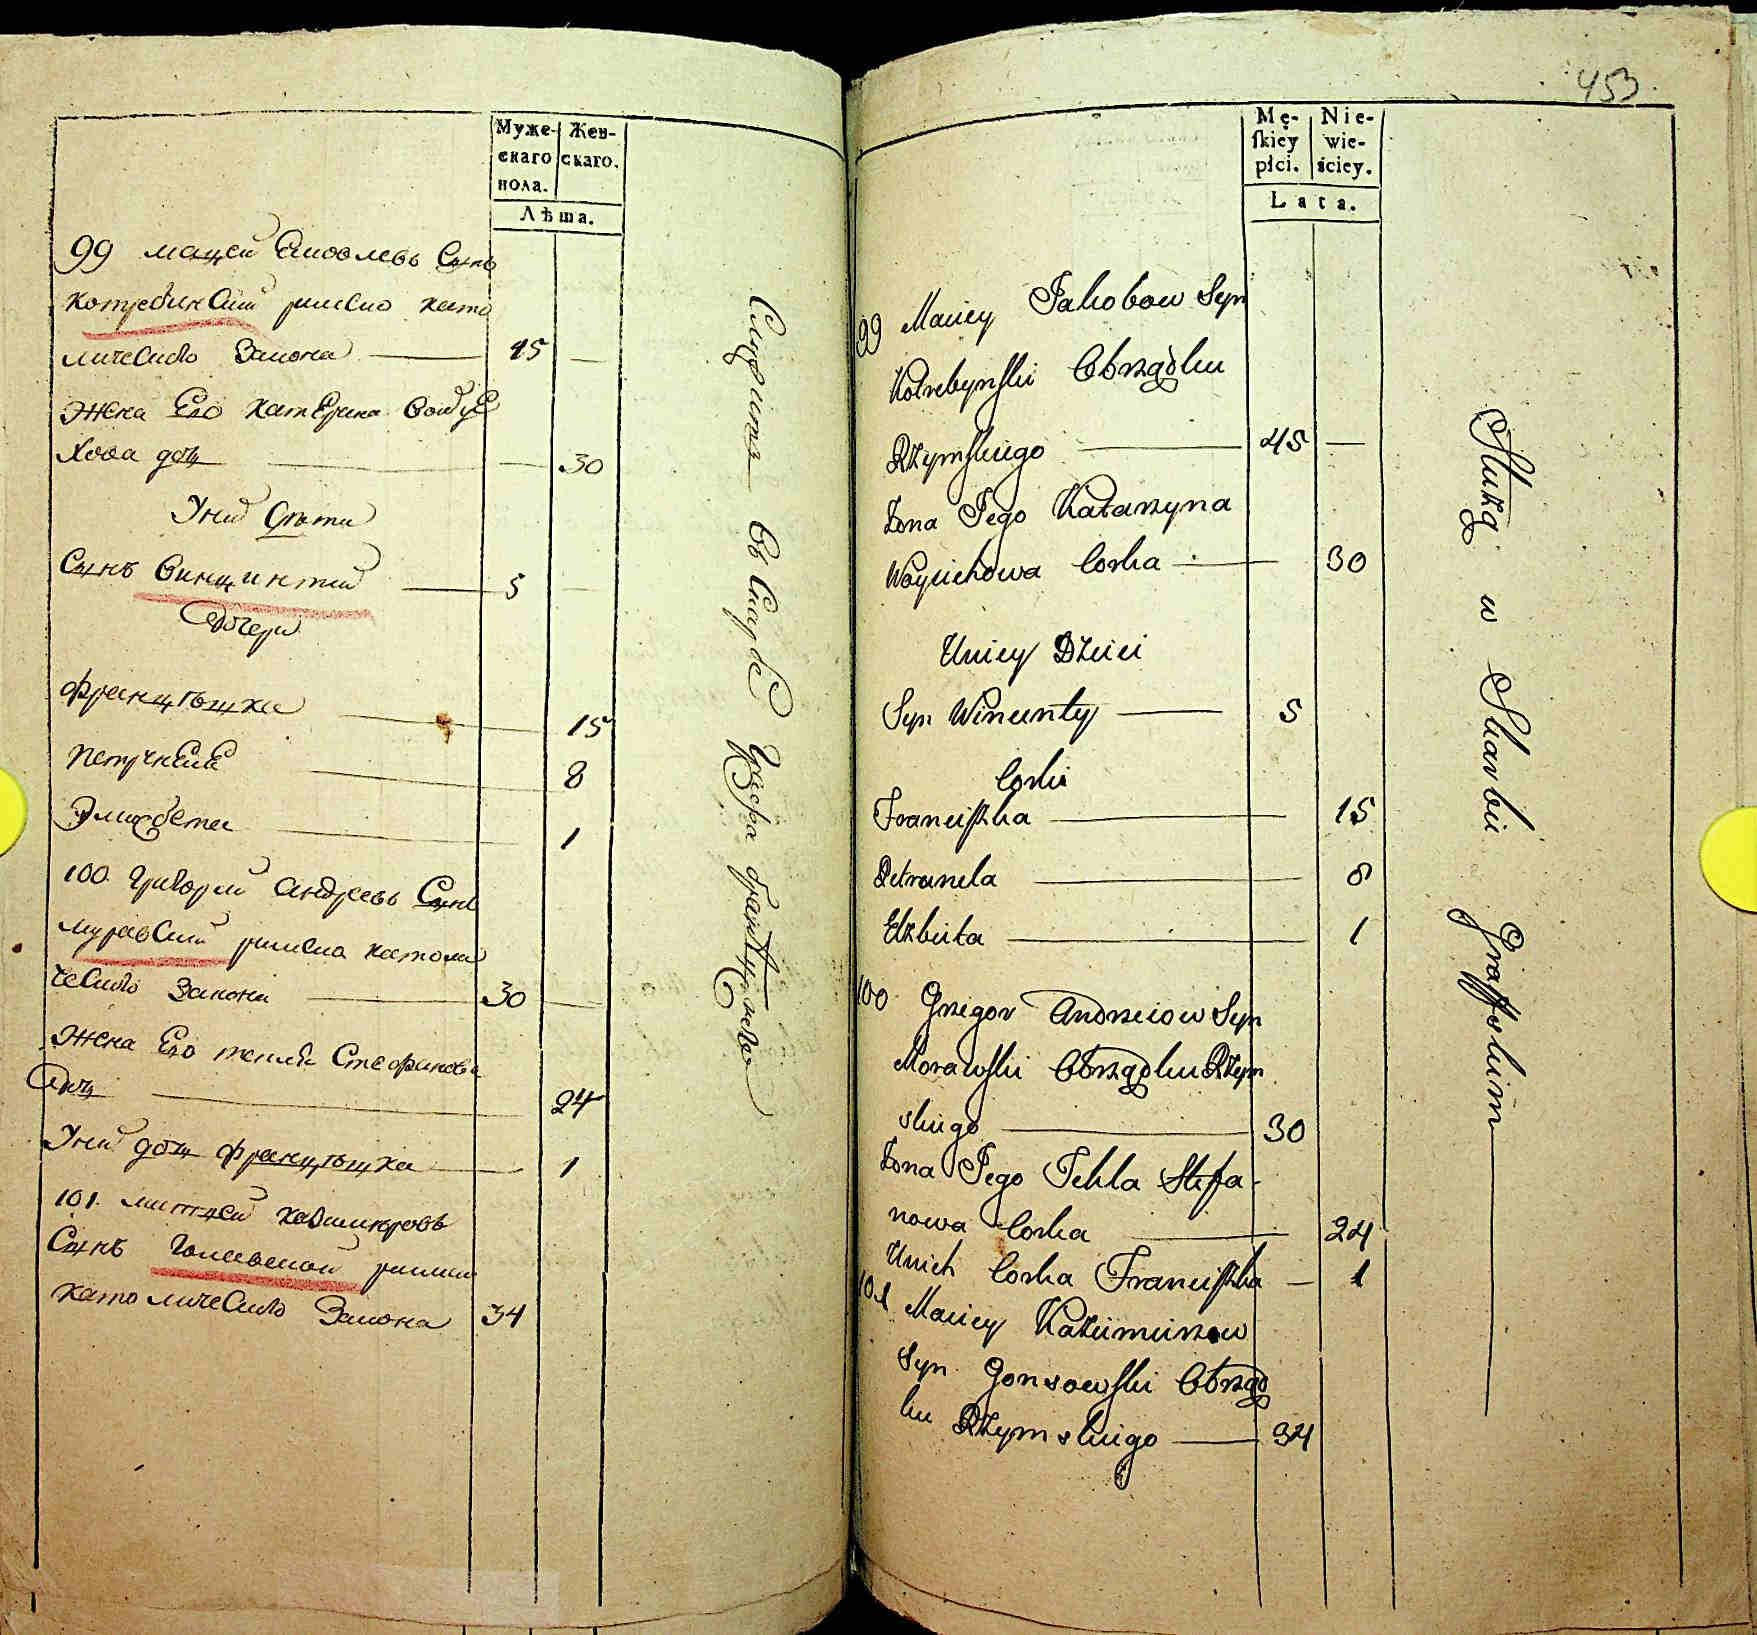 Муже-
скаго
пола.
Жен-
скаго.
Лѣта.
99 мацей Яковлевъ Сынъ
Котребинскій римско като
лическаго Закона 45
Жена Его катерина Войце
хова дочь 30
У них дети
Сынъ Винцентій 5
Дочери
Францышка 15
Петрунеля 8
Элжбета 1
100. Григорій андреевъ Сынъ
муравский римско католи
ческаго Закона 30
Жена Его текля Стефанова
дочь 24
У них дочь францышка 1
101. матцей казимировъ
Сынъ римско
католическаго Закона 34
Служитъ въ Скарбе Графа
453.
Mę-
skiey
płci.
Nie-
wie-
ściey.
Lata.
99 Maciey Jakobow Syn
Kotrebynski Obrządku
Rzymskiego 45
Żona Jego Katarzyna
Woyciechowa Corka 30
U nich Dzieci
Syn Wincenty 5
Corki
Franciszka 15
Petranela 8
Elzbieta 1
100 Grzegorz Andrzeiow Syn
Morawski Obrządku Rzym
skiego 30
Żona Jego Tekla Stefa-
nowa Corka 24
U nich Corka Franciszka 1
101 Maciey Kazimierzow
Syn Gonsowski Obrząd
ku Rzymskiego 34
Służą w Skarbie Graffskim